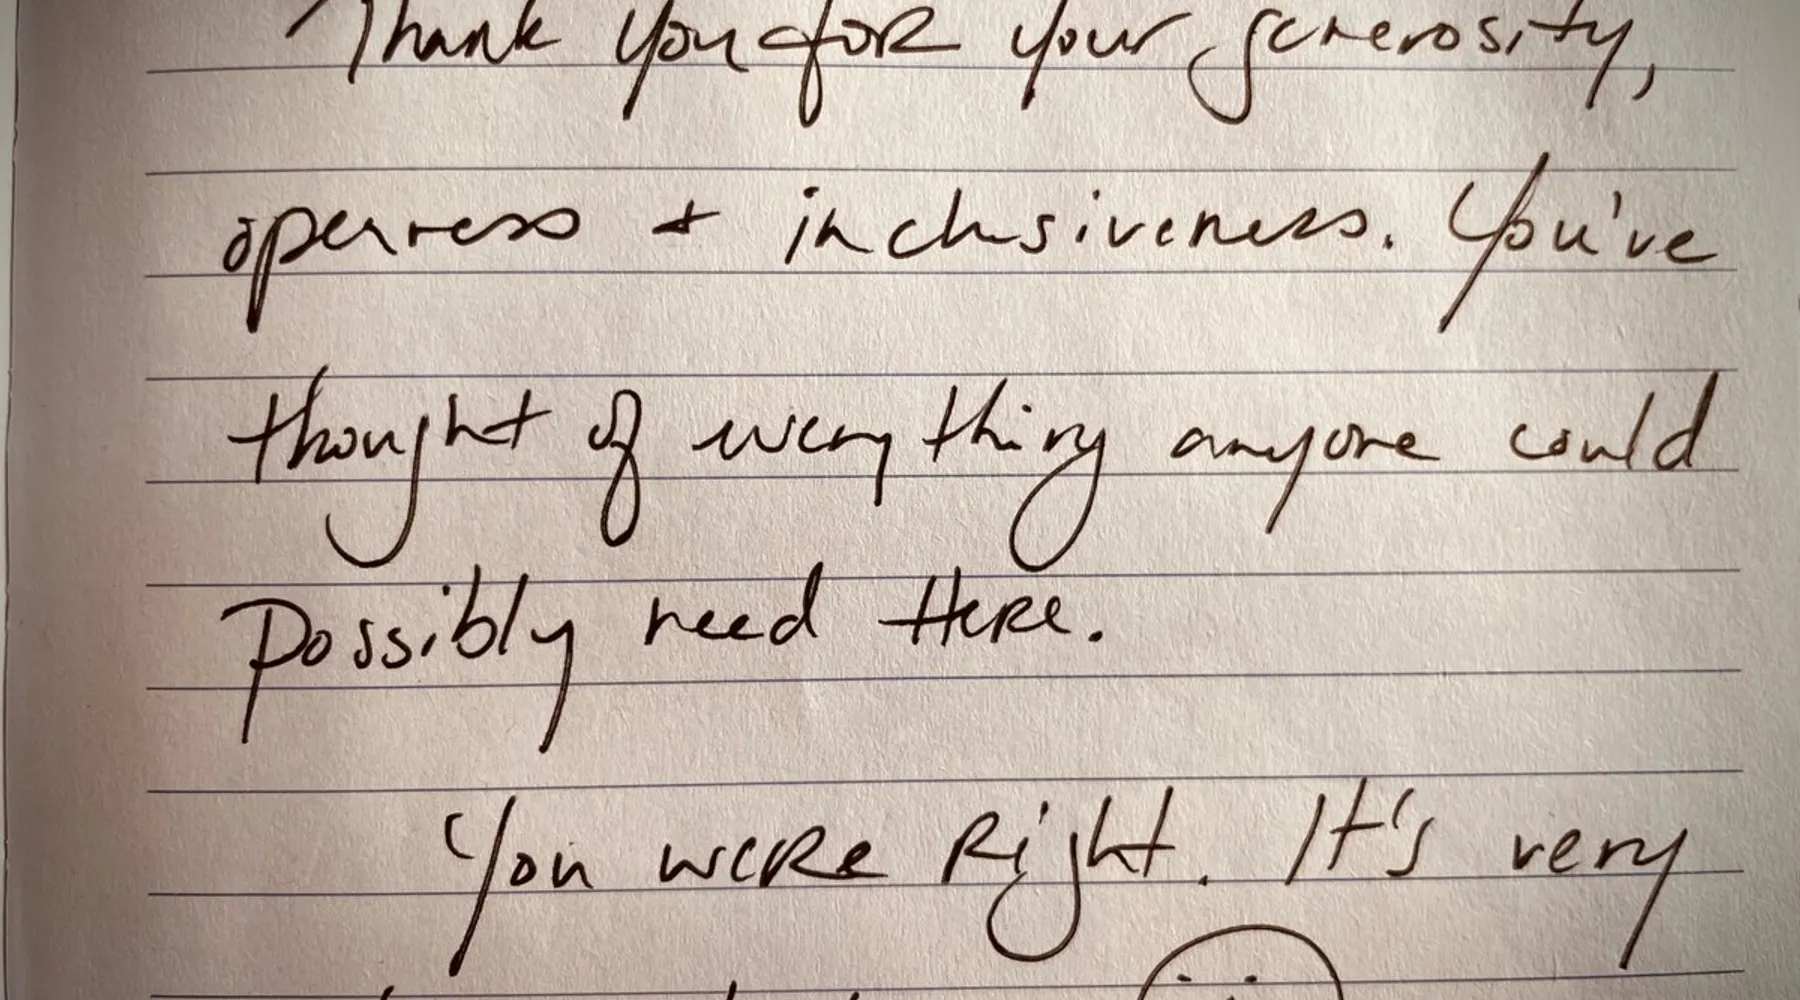 Thank you for your generosity,
openness + inclusiveness. You've
thought of everything anyone could
possibly need Here.
You were Right. It's very